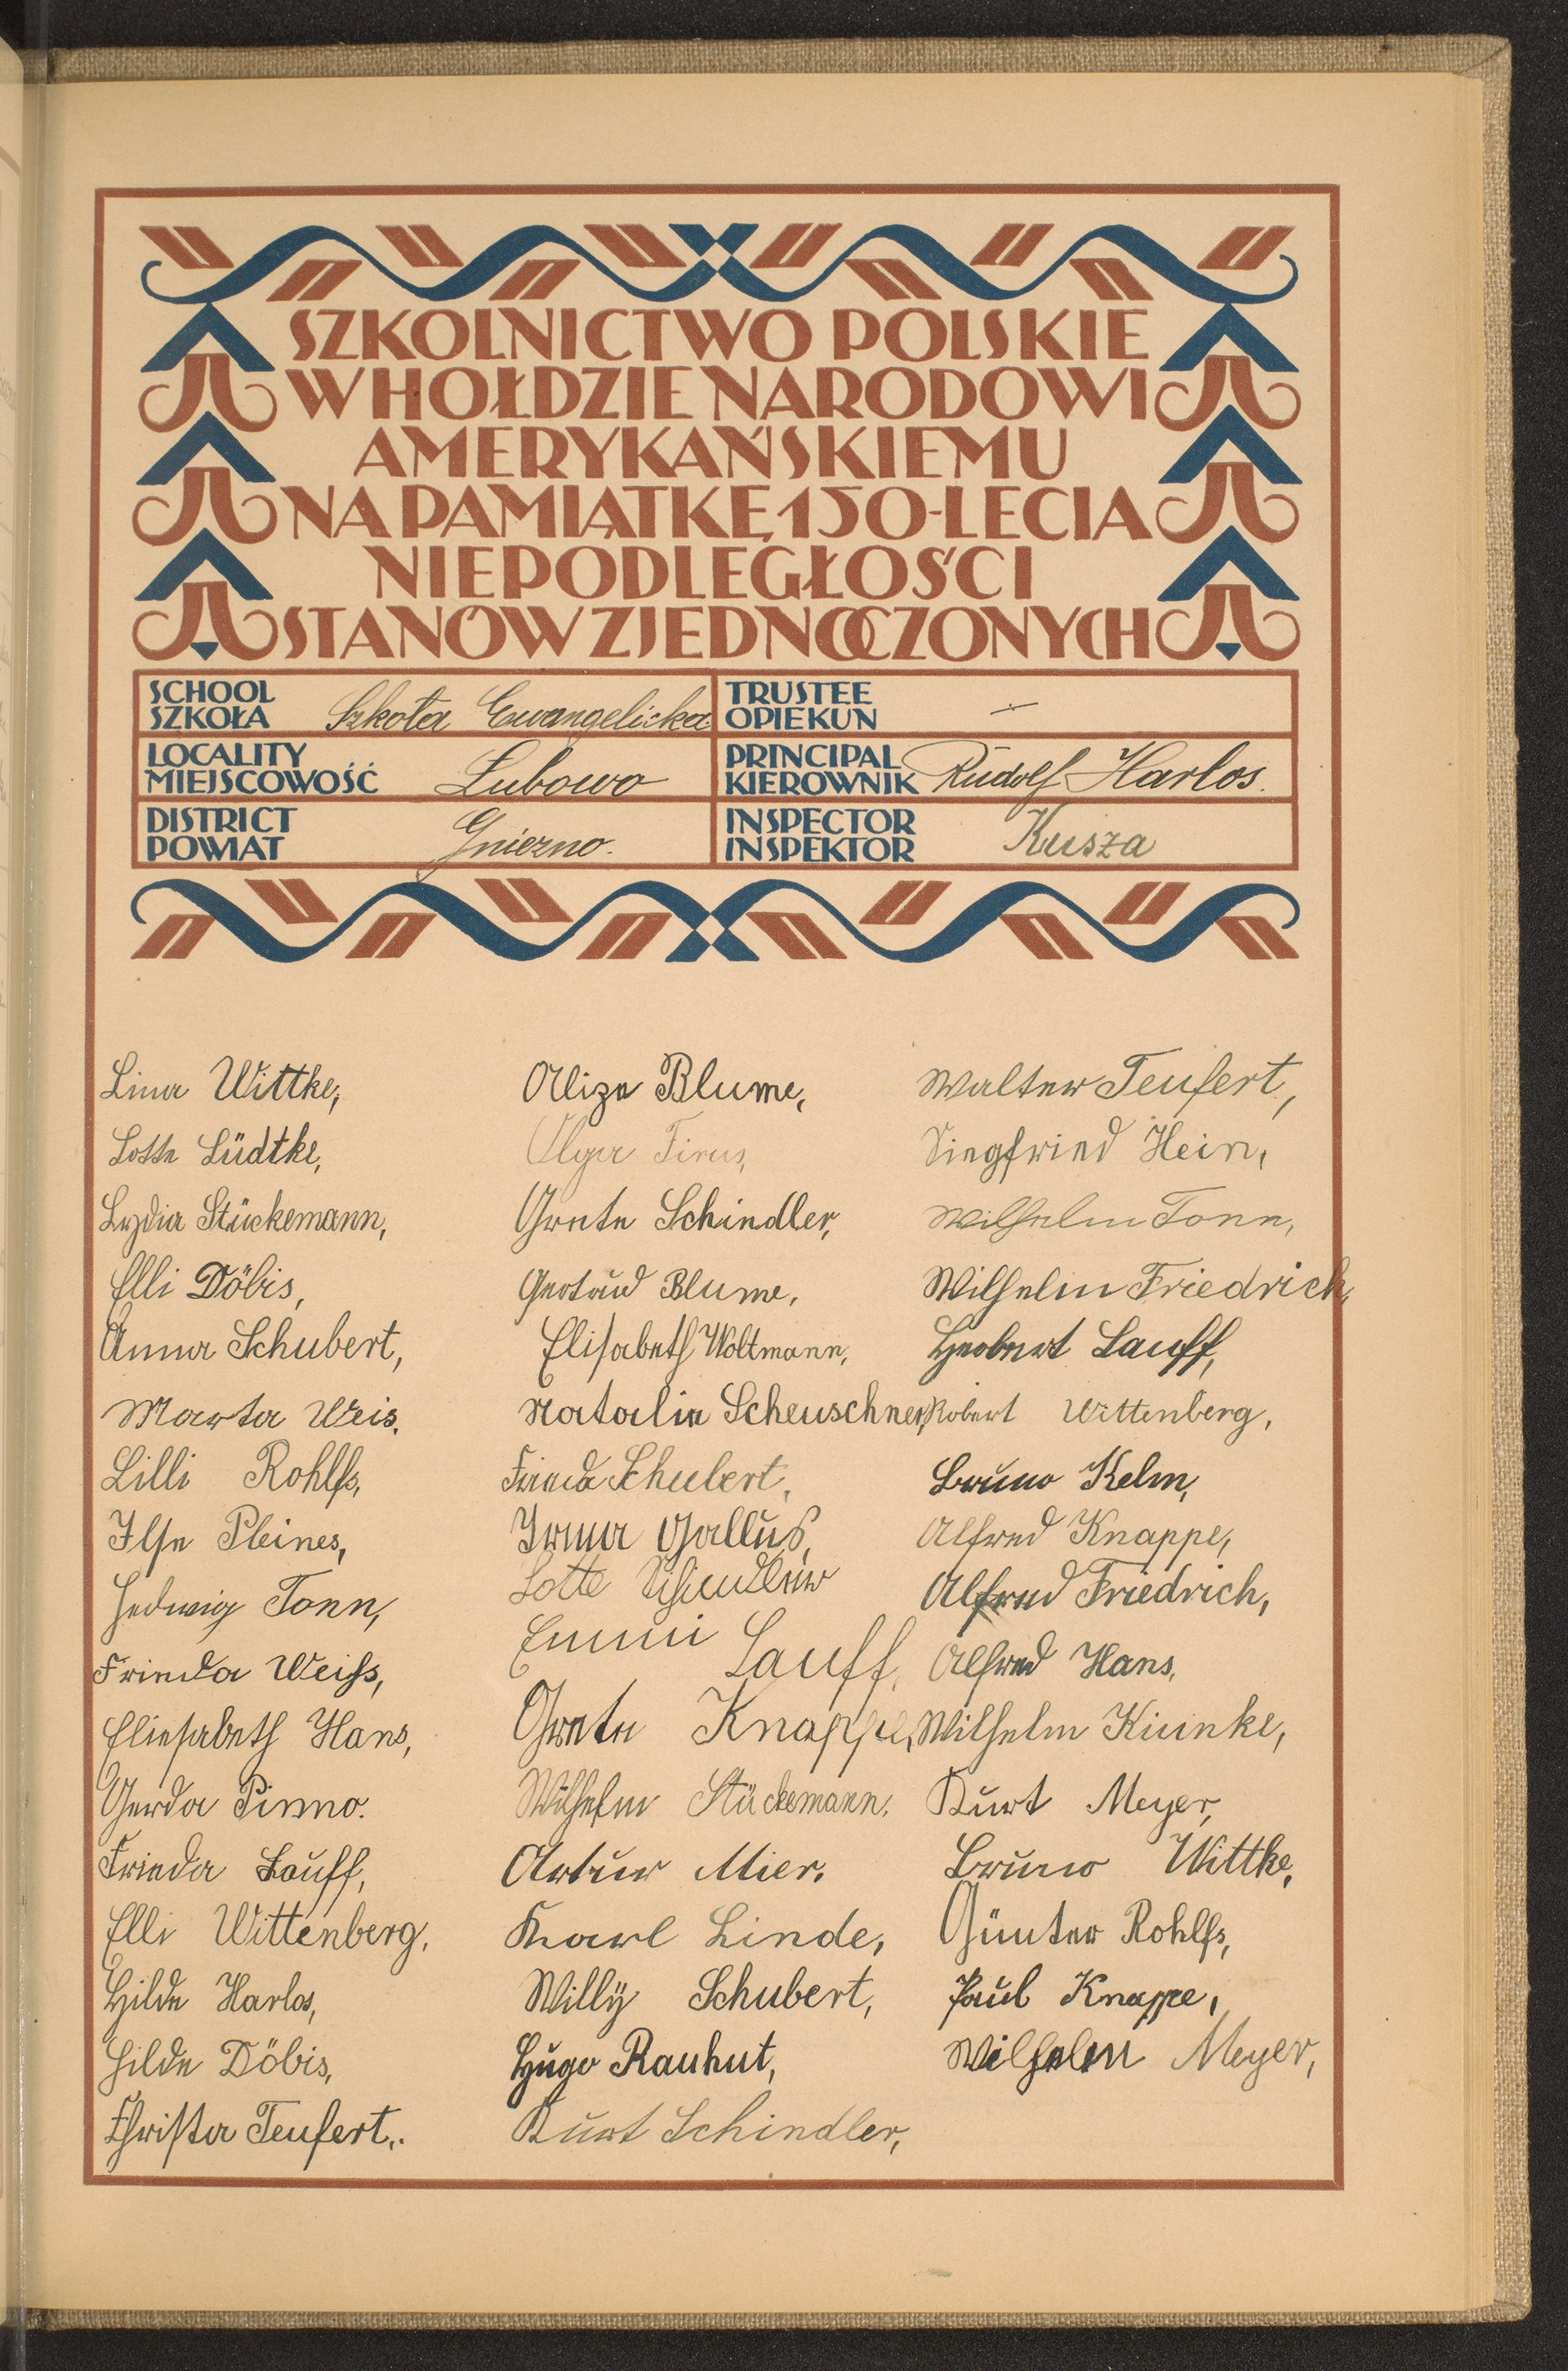 SZKOLNICTWO POLSKIE
W HOŁDZIE NARODOWI
AMERYKAŃSKIEMU
NA PAMIĄTKĘ 150-LECIA
NIEPODLEGŁOŚCI
STANÓW ZJEDNOCZONYCH
SCHOOL
SZKOŁA Szkoła Ewangelicka
TRUSTEE
OPIEKUN —
LOCALITY
MIEJSCOWOŚĆ Łubowo
PRINCIPAL
KIEROWNIK Rudolf Harlos.
DISTRICT
POWIAT Gniezno.
INSPECTOR
INSPEKTOR Kusza
Lina Wittke,
Lotte Lüdtke,
Lydia Stückemann,
Elli Döbis,
Anna Schubert,
Marta Weis.
Lilli Rohlfs,
Ilse Pleines,
Hedwig Tonn,
Frieda Weiss,
Eliesabeth Hans,
Gerda Pinno.
Frieda Lauff,
Elli Wittenberg,
Hilde Harlos,
Hilde Döbis,
Christa Teufert,.
Alize Blume,
Olga Firus,
Grete Schindler,
Gertrud Blume,
Elisabeth Woltmann,
Natalie Scheuschner,
Frieda Schubert,
Irma Gallus,
Lotte Schindler
Emmi Lauff,
Grete Knappe,
Wilhelm Stückemann,
Artur Mier,
Karl Linde,
Willÿ Schubert,
Hugo Rauhut,
Kurt Schindler,
Walter Teufert,
Siegfried Hein,
Wilhelm Tonn,
Wilhelm Friedrich,
Herbert Lauff,
Robert Wittenberg,
Bruno Kelm,
Alfred Knappe,
Alfred Friedrich,
Alfred Hans,
Wilhelm Kuinke,
Kurt Meyer,
Bruno Wittke,
Günter Rohlfs,
Paul Knappe,
Wilhelm Meyer,